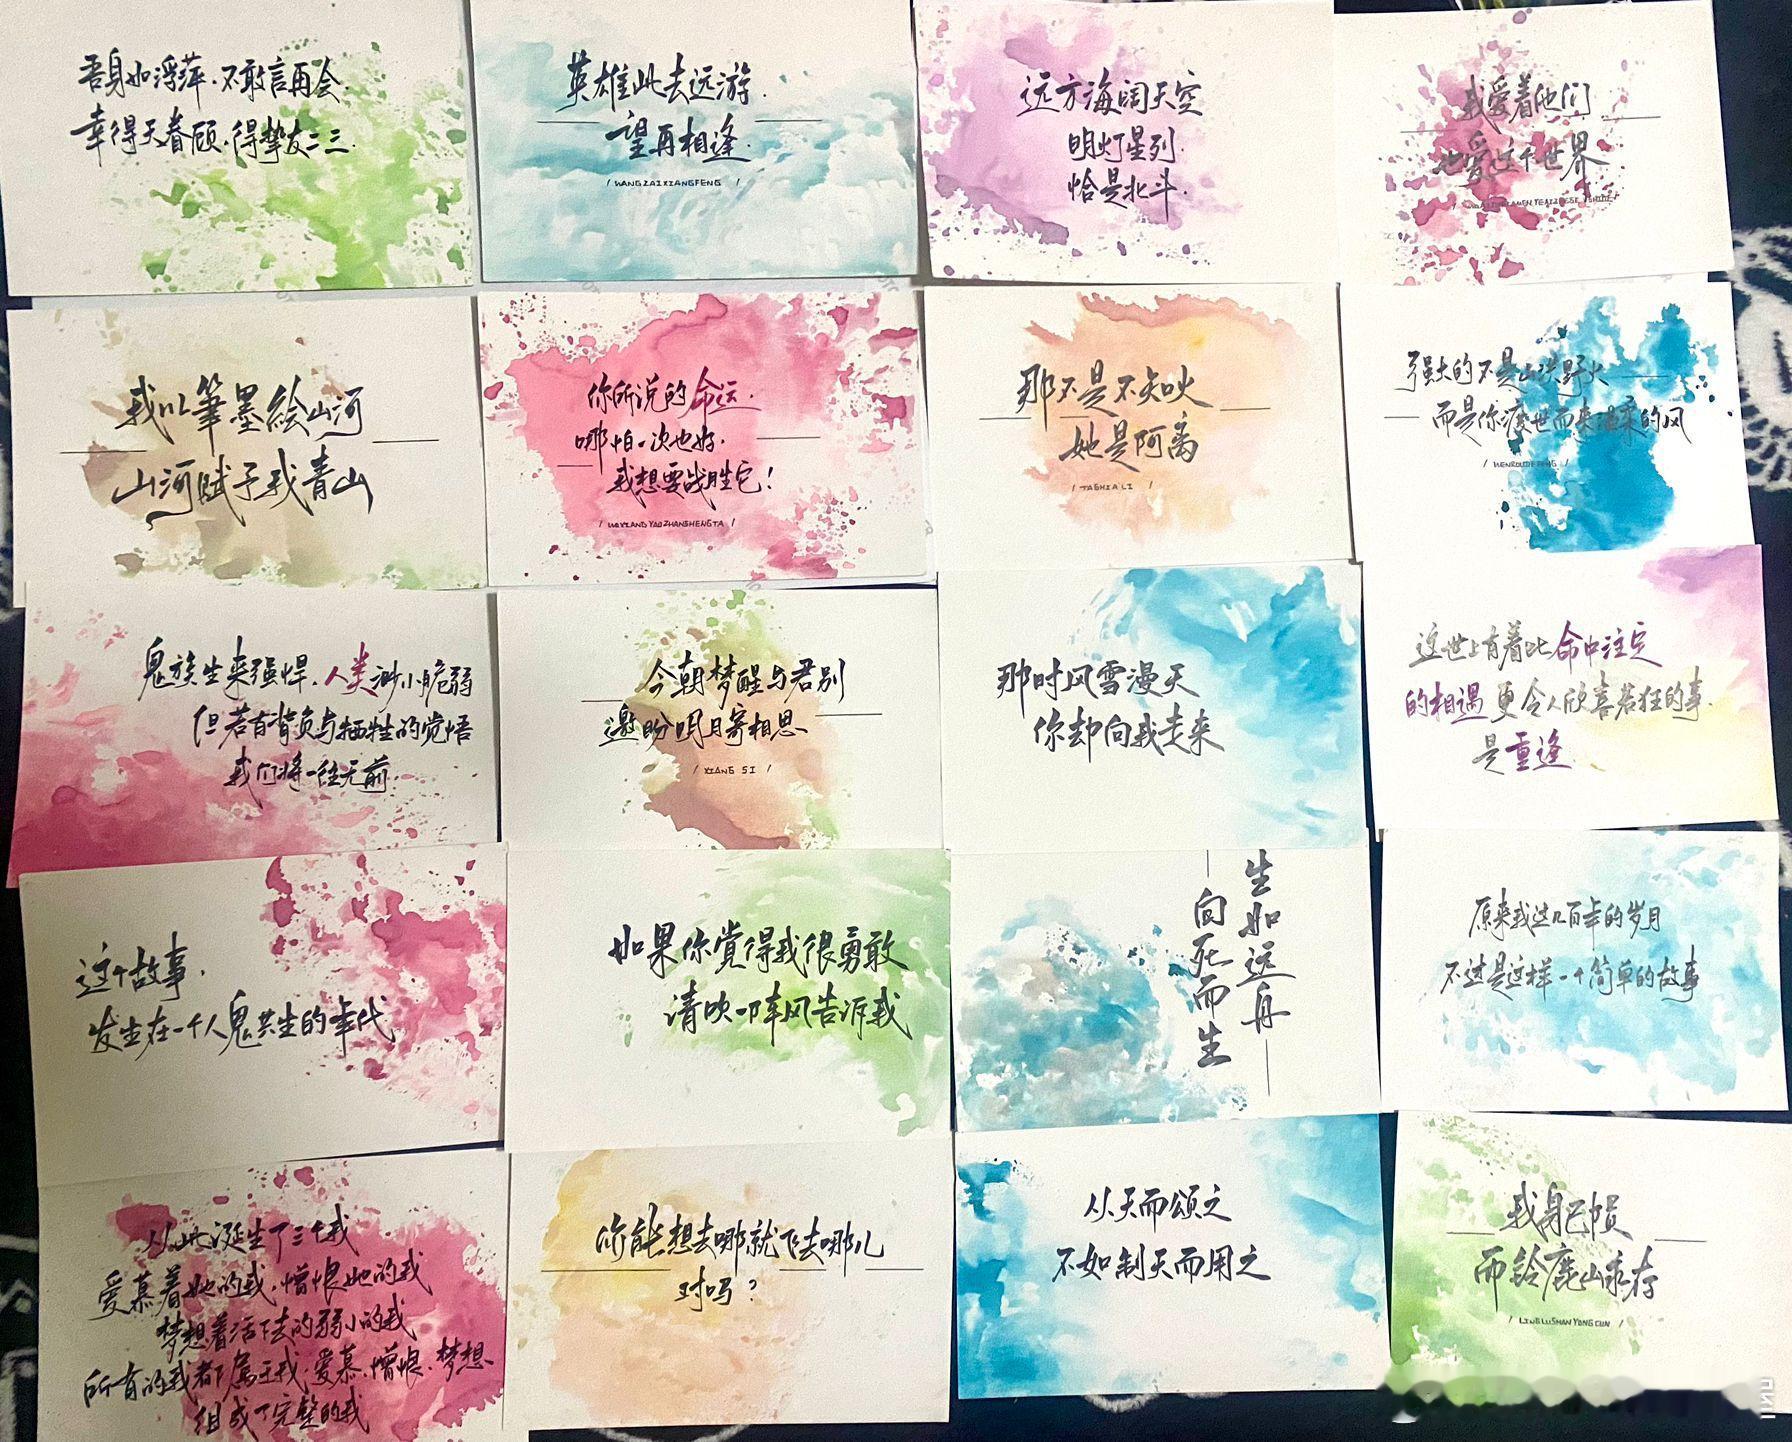 吾身如浮萍.不敢言再会.
幸得天眷顾.得挚友二三.
英雄此去远游.
望再相逢.
/ WANG ZAI XIANG FENG /
远方海阔天空
明灯星列.
恰是北斗.
我爱着他们
也爱这个世界
我以筆墨绘山河
山河赋予我青山
你所说的命运.
哪怕一次也好.
我想要战胜它!
/ WO XIANG YAO ZHAN SHENG TA /
那不是不知火
她是阿离
/ TA SHI A LI /
强大的不是山洪野火
而是你渡世而来温柔的风
/ WEN ROU DE FENG /
鬼族生来强悍.人类渺小脆弱
但若有背负与牺牲的觉悟
我们将一往无前.
今朝梦醒与君别
邀盼明月寄相思
/ XIANG SI /
那时风雪漫天
你却向我走来
这世上有着比命中注定
的相遇更令人欣喜若狂的事.
是重逢
这个故事.
发生在一个人鬼共生的年代
如果你覺得我很勇敢
请吹一阵风告诉我
生如远舟
向死而生
原来我这几百年的岁月
不过是这样一个简单的故事
从此诞生了三个我
爱慕着她的我.憎恨她的我
梦想着活下去的弱小的我
所有的我都属于我.爱慕.憎恨.梦想.
组成了完整的我
你能想去哪就下去哪儿
对吗?
从天而颂之
不如制天而用之
我身已惧
而铃鹿山永存
/ LING LU SHAN YONG CUN /